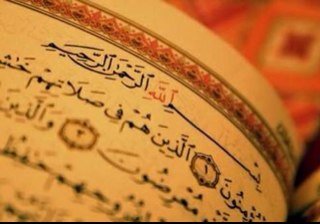 بِسْمِ اللَّهِ الرَّحْمَٰنِ الرَّحِيمِ
ؤْمِنُونَ ١ الَّذِينَ هُمْ فِي صَلَاتِهِمْ خَشِعُ
مُعْرِضُونَ ٣ وَالَّذِينَ